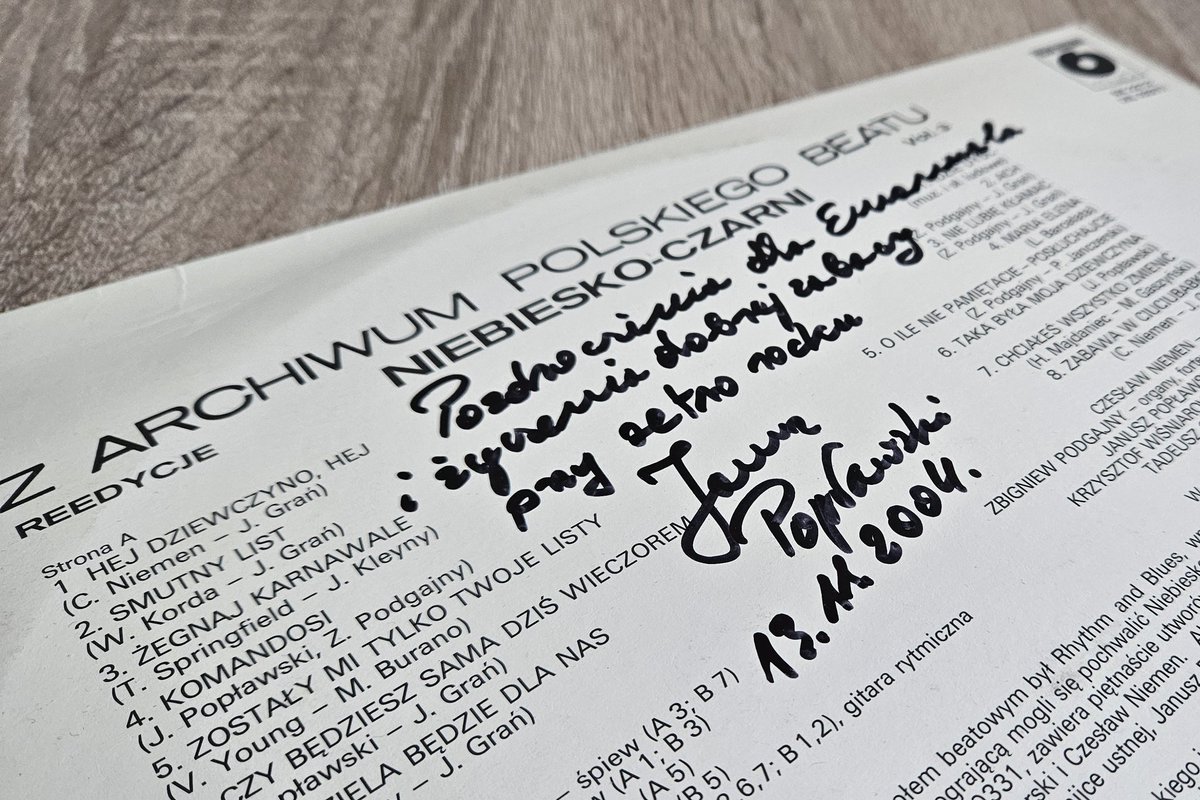 Z ARCHIWUM POLSKIEGO BEATU
Vol. 3
NIEBIESKO-CZARNI
REEDYCJE
Pozdrowienia dla Emanuela
i życzenia dobrej zabawy
przy retro rocku
Janusz
Popławski
13.11.2004.
Strona A
1 HEJ DZIEWCZYNO, HEJ
(C. Niemen – J. Grań)
2. SMUTNY LIST
(W. Korda – J. Grań)
3. ŻEGNAJ KARNAWALE
(T. Springfield – J. Kleyny)
4. KOMANDOSI
(J. Popławski, Z. Podgajny)
5. ZOSTAŁY MI TYLKO TWOJE LISTY
(V. Young – M. Burano)
CZY BĘDZIESZ SAMA DZIŚ WIECZOREM
pławski – J. Grań)
ZIELA BĘDZIE DLA NAS
– J. Grań)
2. ADA
Z. Podgajny – J. Grań)
3. NIE LUBIĘ KŁAMAĆ
(Z. Podgajny – J. Grań)
4. MARIA ELENA
5. O ILE NIE PAMIĘTACIE – POSŁUCHAJCIE
(Z. Podgajny – P. Janczerski)
6. TAKA BYŁA MOJA DZIEWCZYNA
(J. Popławski)
7. CHCIAŁEŚ WSZYSTKO ZMIENIĆ
(H. Majdaniec – M. Gaszyński)
8. ZABAWA W CIUCIUBABKĘ
(C. Niemen –
CZESŁAW NIEMEN –
ZBIGNIEW PODGAJNY – organy, for
JANUSZ POPŁAW
KRZYSZTOF WIŚNIAR
TADEUS
– śpiew (A 3; B 7)
w (A 1; B 3)
(A 5)
B 5)
2,6,7; B 1,2), gitara rytmiczna
otem beatowym był Rhythm and Blues, w
ograjającą mogli się pochwalić Niebiesk
031, zawiera piętnaście utworów
rski i Czesław Niemen.
ijce ustnej, Janusz